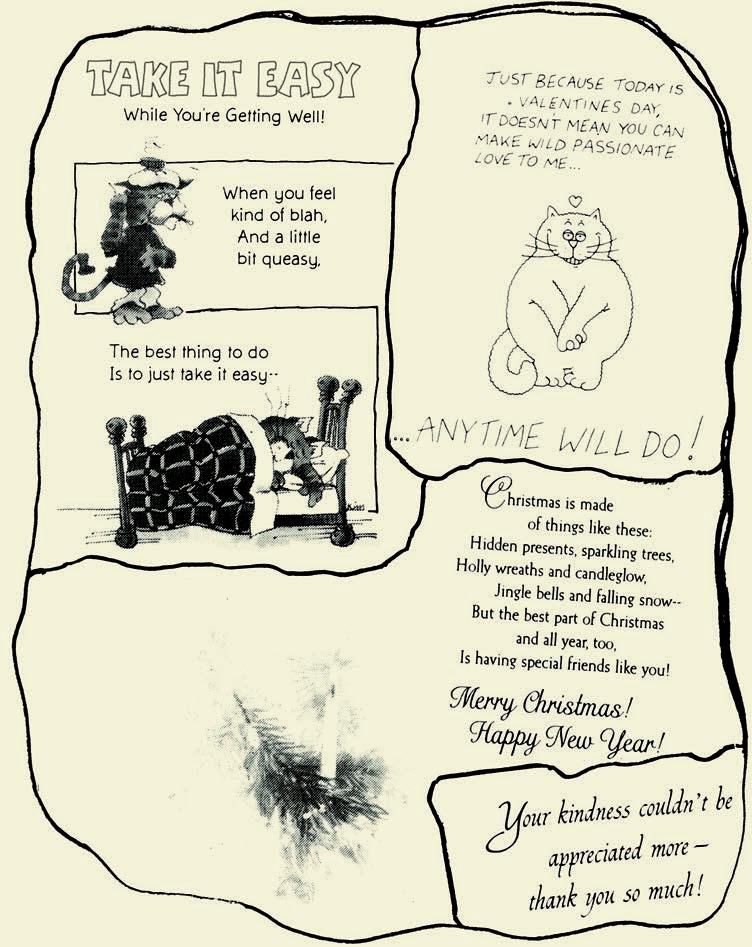 TAKE IT EASY
While You're Getting Well!
When you feel
kind of blah,
And a little
bit queasy,
The best thing to do
Is to just take it easy--
JUST BECAUSE TODAY IS
VALENTINES DAY,
IT DOESN'T MEAN YOU CAN
MAKE WILD PASSIONATE
LOVE TO ME...
...ANYTIME WILL DO!
Christmas is made
of things like these:
Hidden presents, sparkling trees,
Holly wreaths and candleglow,
Jingle bells and falling snow--
But the best part of Christmas
and all year, too,
Is having special friends like you!
Merry Christmas!
Happy New Year!
Your kindness couldn't be
appreciated more –
thank you so much!